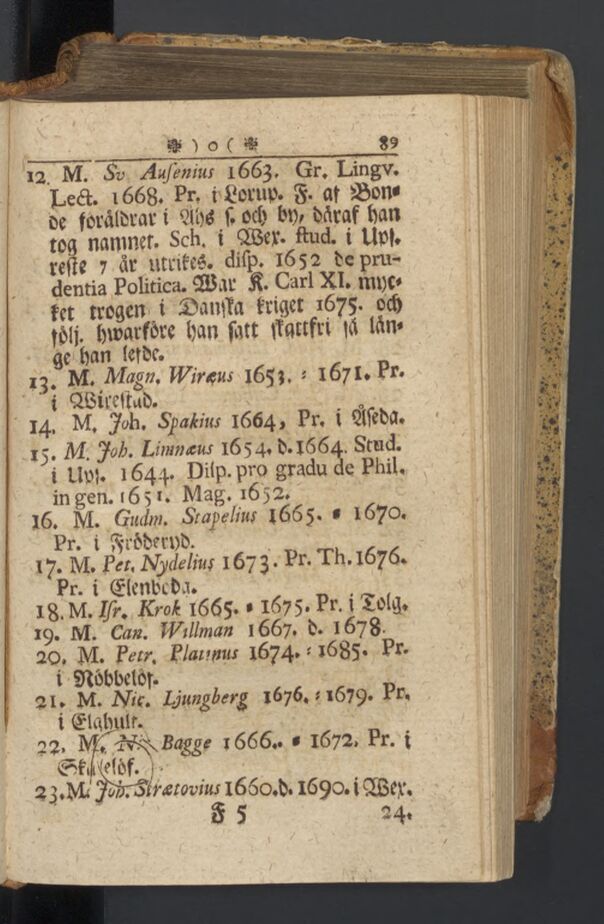 ❉ ) o ( ❉ 89
12. M. Sv Ausenius 1663. Gr. Lingv.
Lect. 1668. Pr. i Lorup. F. af Bon-
de föräldrar i Ahs s. och by, däraf han
tog namnet. Sch. i Wex. stud. i Ups.
reste 7 år utrikes. disp. 1652 de pru-
dentia Politica. War K. Carl XI. myc-
ket trogen i Danska kriget 1675. och
följ. hwarföre han satt skattfri så län-
ge han lefde.
13. M. Magn. Wiræus 1653. : 1671. Pr.
i Wirestad.
14. M. Joh. Spakius 1664, Pr. i Åseda.
15. M. Joh. Limnæus 1654. d. 1664. Stud.
i Ups. 1644. Disp. pro gradu de Phil.
in gen. 1651. Mag. 1652.
16. M. Gudm. Stapelius 1665. : 1670.
Pr. i Fröderyd.
17. M. Pet. Nydelius 1673. Pr. Th. 1676.
Pr. i Elenboda.
18. M. Isr. Krok 1665. : 1675. Pr. i Tolg.
19. M. Can. Willman 1667. d. 1678.
20. M. Petr. Platinus 1674. : 1685. Pr.
i Nöbbelöf.
21. M. Nic. Ljungberg 1676. : 1679. Pr.
i Elghult.
22. M. Bagge 1666. : 1672. Pr. i
23. M. Joh. Strætovius 1660. d. 1690. i Wex.
F 5 24.